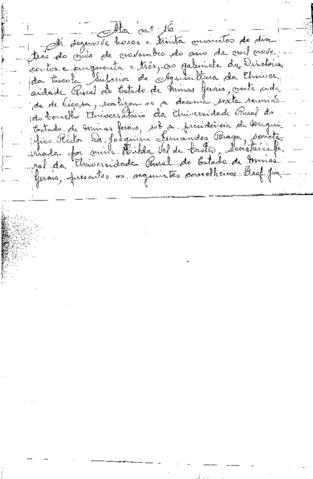 Ata nº 16
Às dezenove horas e trinta minutos do dia
três do mês de novembro do ano de mil nove-
centos e cinquenta e três, no gabinete da Diretoria
da Escola Superior de Agricultura da Univer-
sidade Rural do Estado de Minas Gerais, nesta cida-
de de Viçosa, realizou-se a decima sexta reunião
do Conselho Universitário da Universidade Rural do
Estado de Minas Gerais, sob a presidência do Magní-
fico Reitor Dr. Joaquim Fernandes Braga, secreta-
riada por mim Hilda Val de Castro, Secretária Ge-
ral da Universidade Rural do Estado de Minas
Gerais, presentes os seguintes conselheiros: Prof.